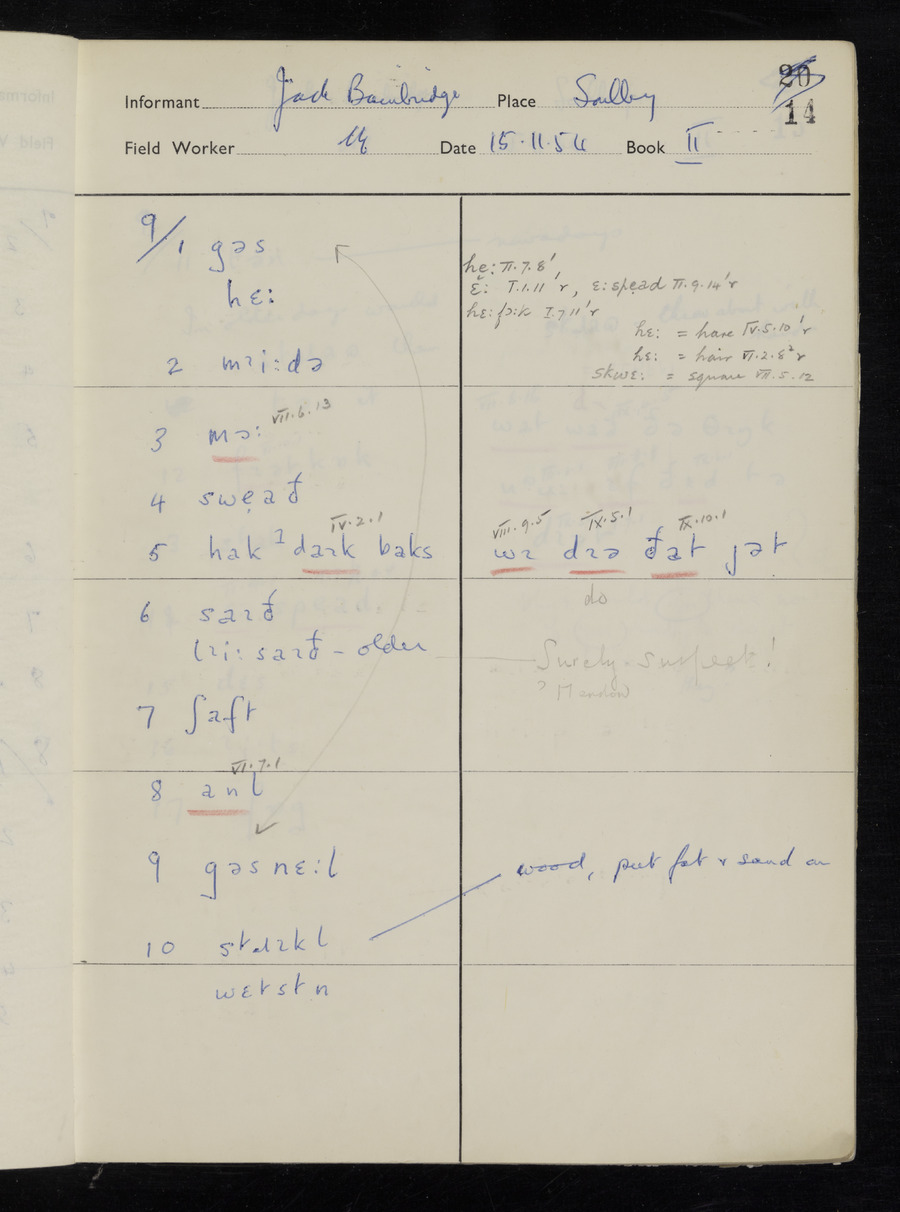 20
14
Informant Jack Bainbridge Place Soulby
Field Worker Date 15.11.54 Book II
9/1 gəs
hɛ:
2 mɪi:də
VII.6.13
3 mɔ:
4 swẹəð
IV.2.1
5 hak ɪdaɪk baks
6 saɪð
lɪi: saɪð – older
7 ʃaft
VI.7.1
8 anl
9 gəs nɛ:l
10 stɹɪkl
wɛtstn
he: II.7.8'
ɛ̆: I.1.11'r, ɛ:spẹad II.9.14'r
hɛ:fɔ:k I.7.11'r
hɛ: = hare IV.5.10'r
hɛ: = hair VI.2.8²r
skwɛ: = square VII.5.12
VIII.9.5 IX.5.1 IX.10.1
wɪ dɪə ðat jət
do
Surely suspect!
? Meadow
wood, put fat & sand on